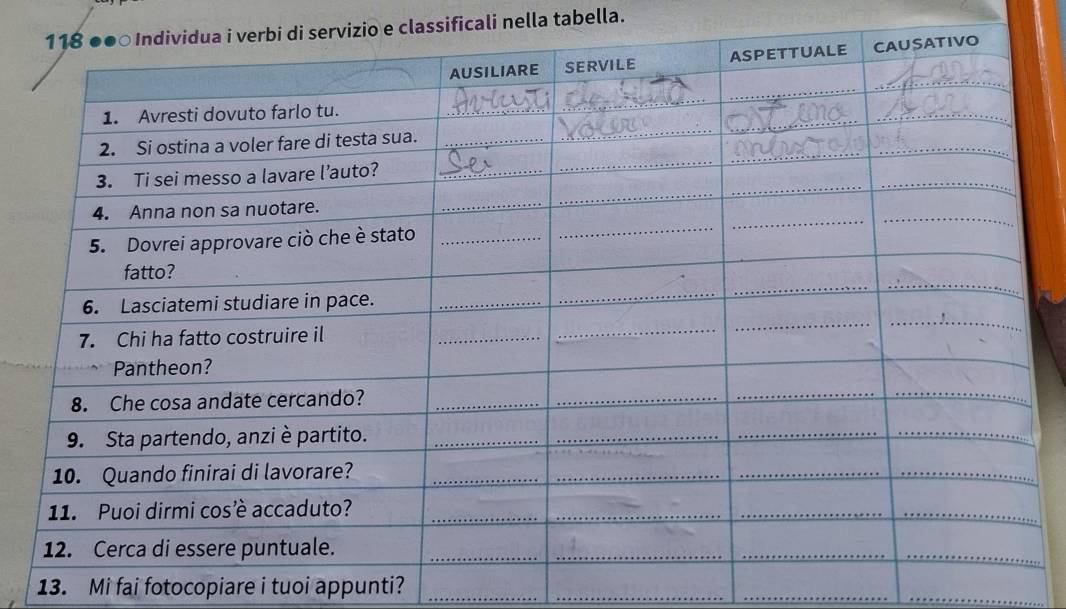 118 ●●○ Individua i verbi di servizio e classificali nella tabella.
AUSILIARE SERVILE ASPETTUALE CAUSATIVO
1. Avresti dovuto farlo tu. Avresti dovuto farlo
2. Si ostina a voler fare di testa sua. voler ostina fare
3. Ti sei messo a lavare l'auto? Sei messo a lavare
4. Anna non sa nuotare.
5. Dovrei approvare ciò che è stato
fatto?
6. Lasciatemi studiare in pace.
7. Chi ha fatto costruire il
Pantheon?
8. Che cosa andate cercando?
9. Sta partendo, anzi è partito.
10. Quando finirai di lavorare?
11. Puoi dirmi cos'è accaduto?
12. Cerca di essere puntuale.
13. Mi fai fotocopiare i tuoi appunti?